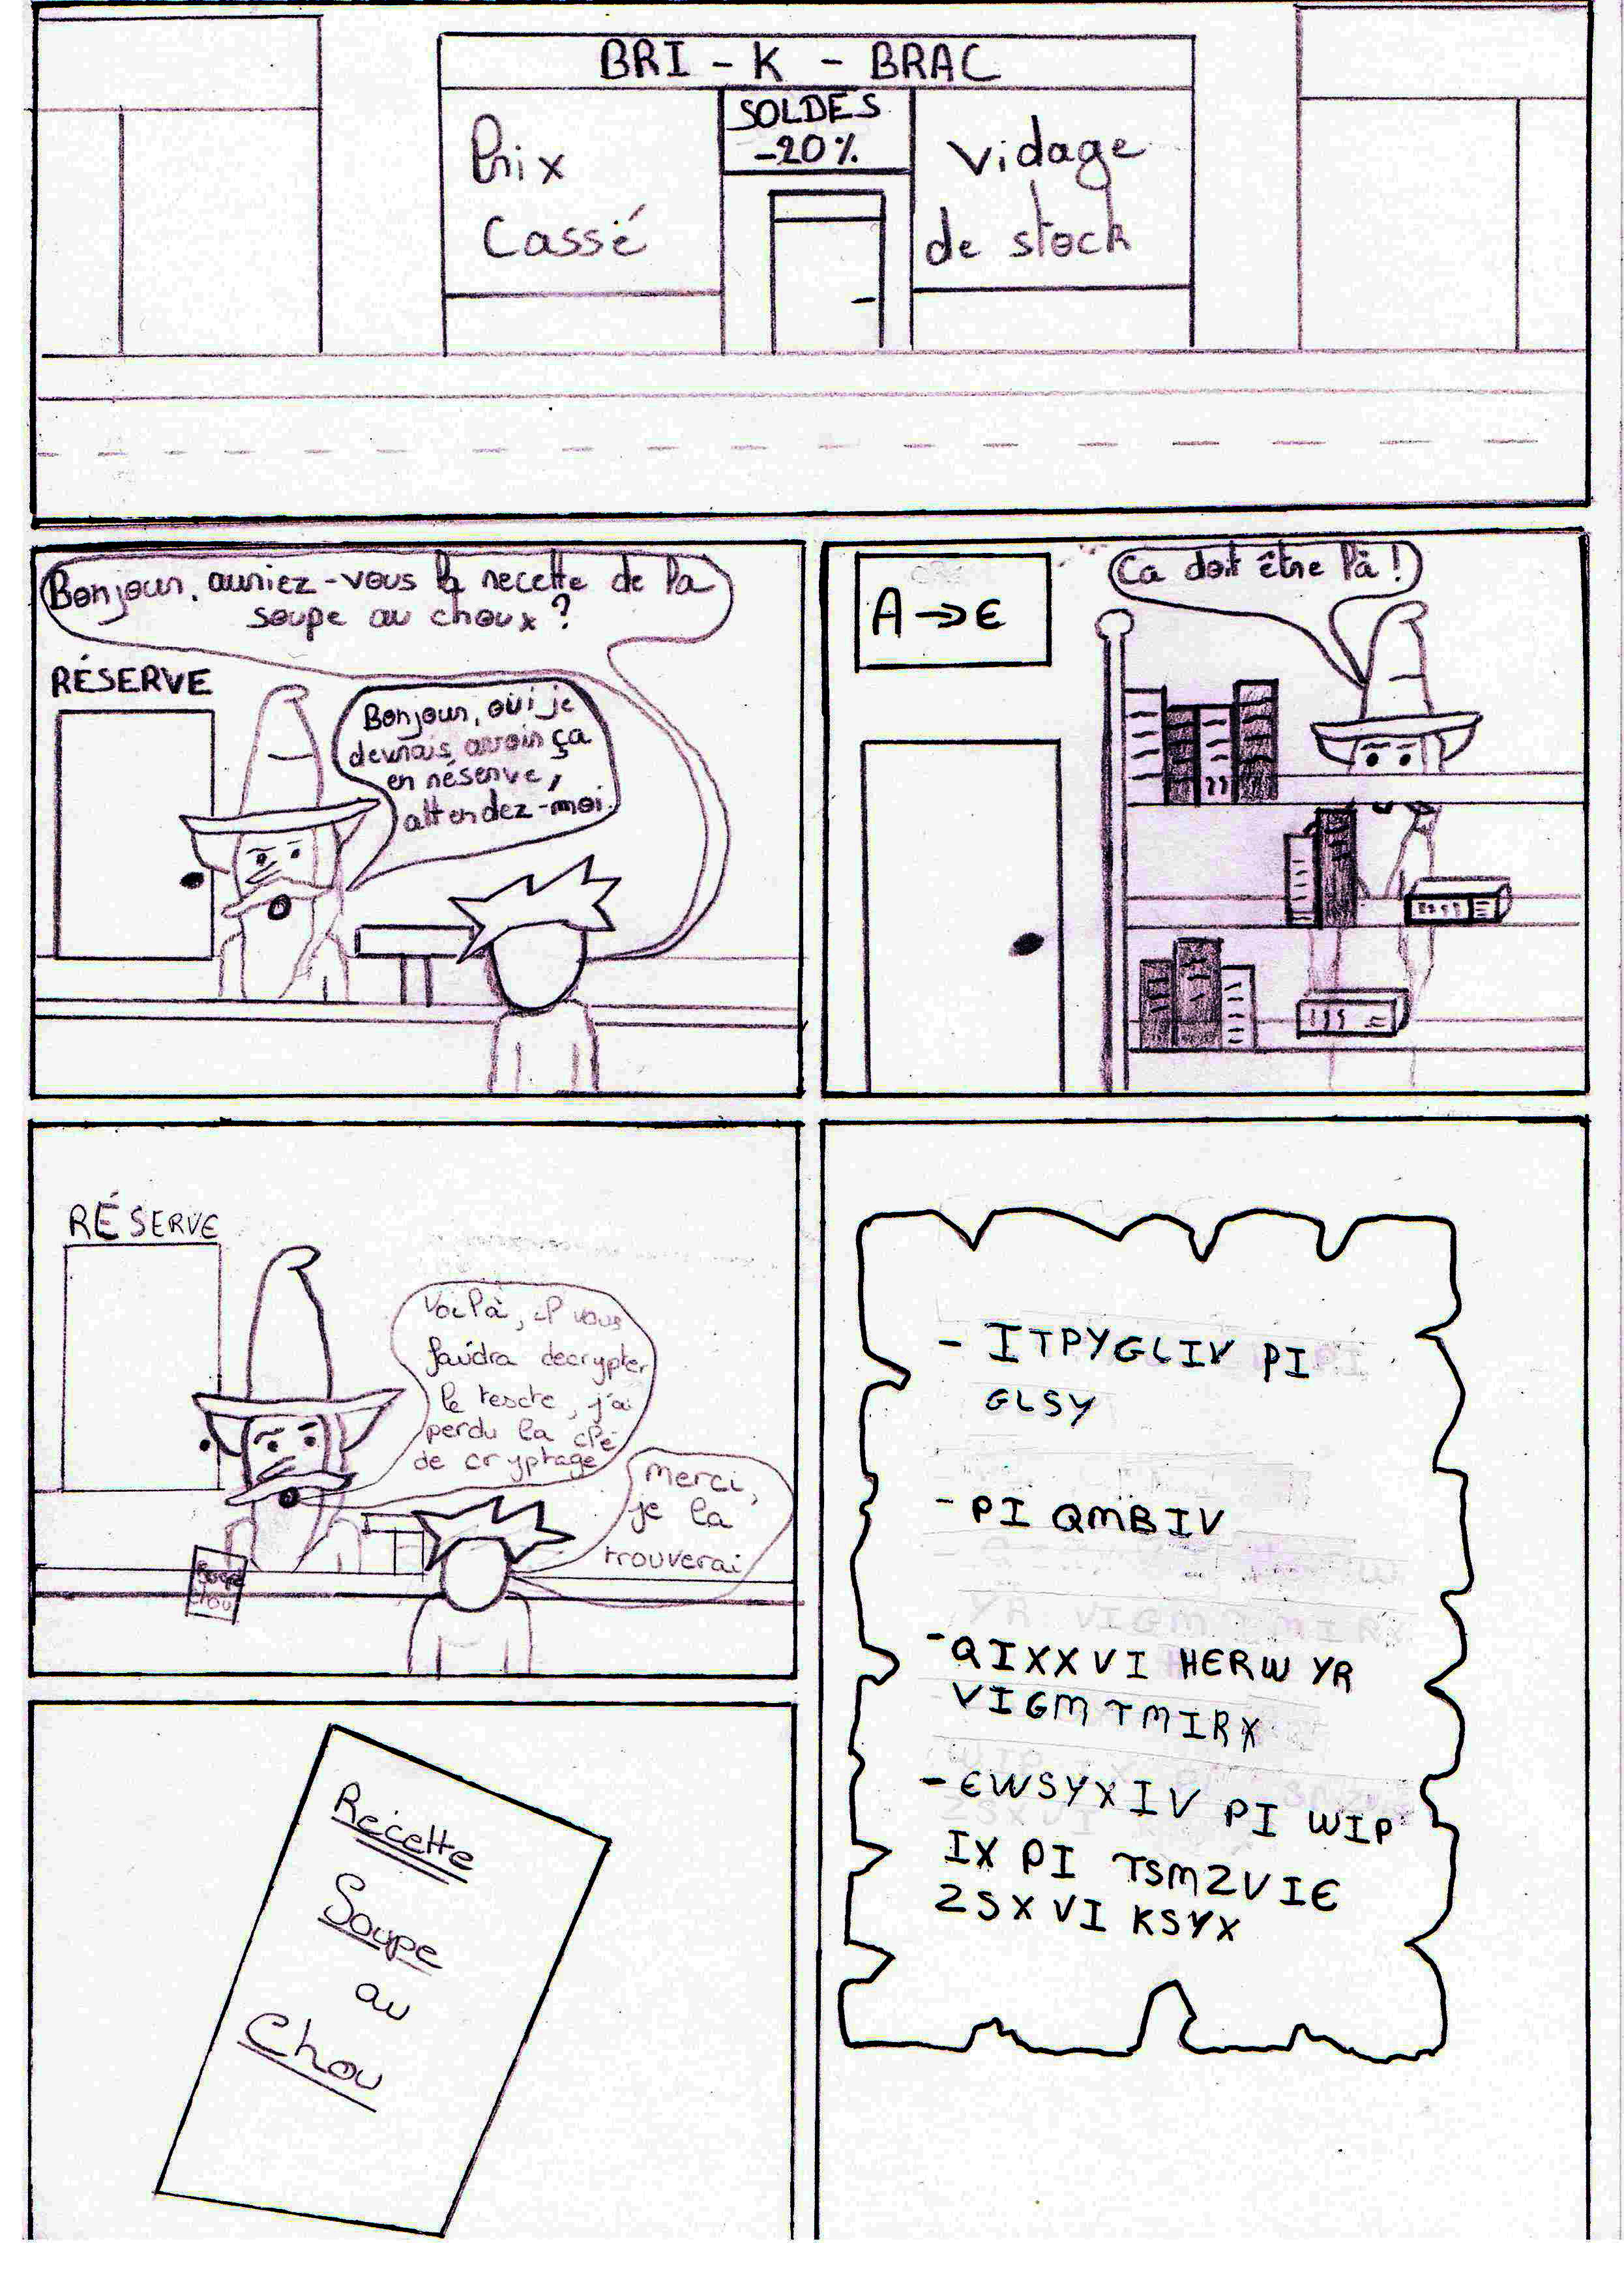 BRI - K - BRAC
SOLDES
-20%
Prix
Cassé
Vidage
de stock
Bonjour, auriez-vous la recette de la
soupe au choux ?
RÉSERVE
Bonjour, oui je
devrais avoir ça
en réserve,
attendez-moi.
A→E
Ca doit être là !
RÉSERVE
Voilà, il vous
faudra decrypter
le texte, j'ai
perdu la clé
de cryptage
Merci,
je la
trouverai
Soupe
chou
Recette
Soupe
au
Chou
- ITPYGLIV PI
GLSY
- PI QMBIV
- QIXXVI HERW YR
VIGMTMIRX
- EWSYXIV PI WIP
IX PI TSMZVI E
ZSXVI KSYX